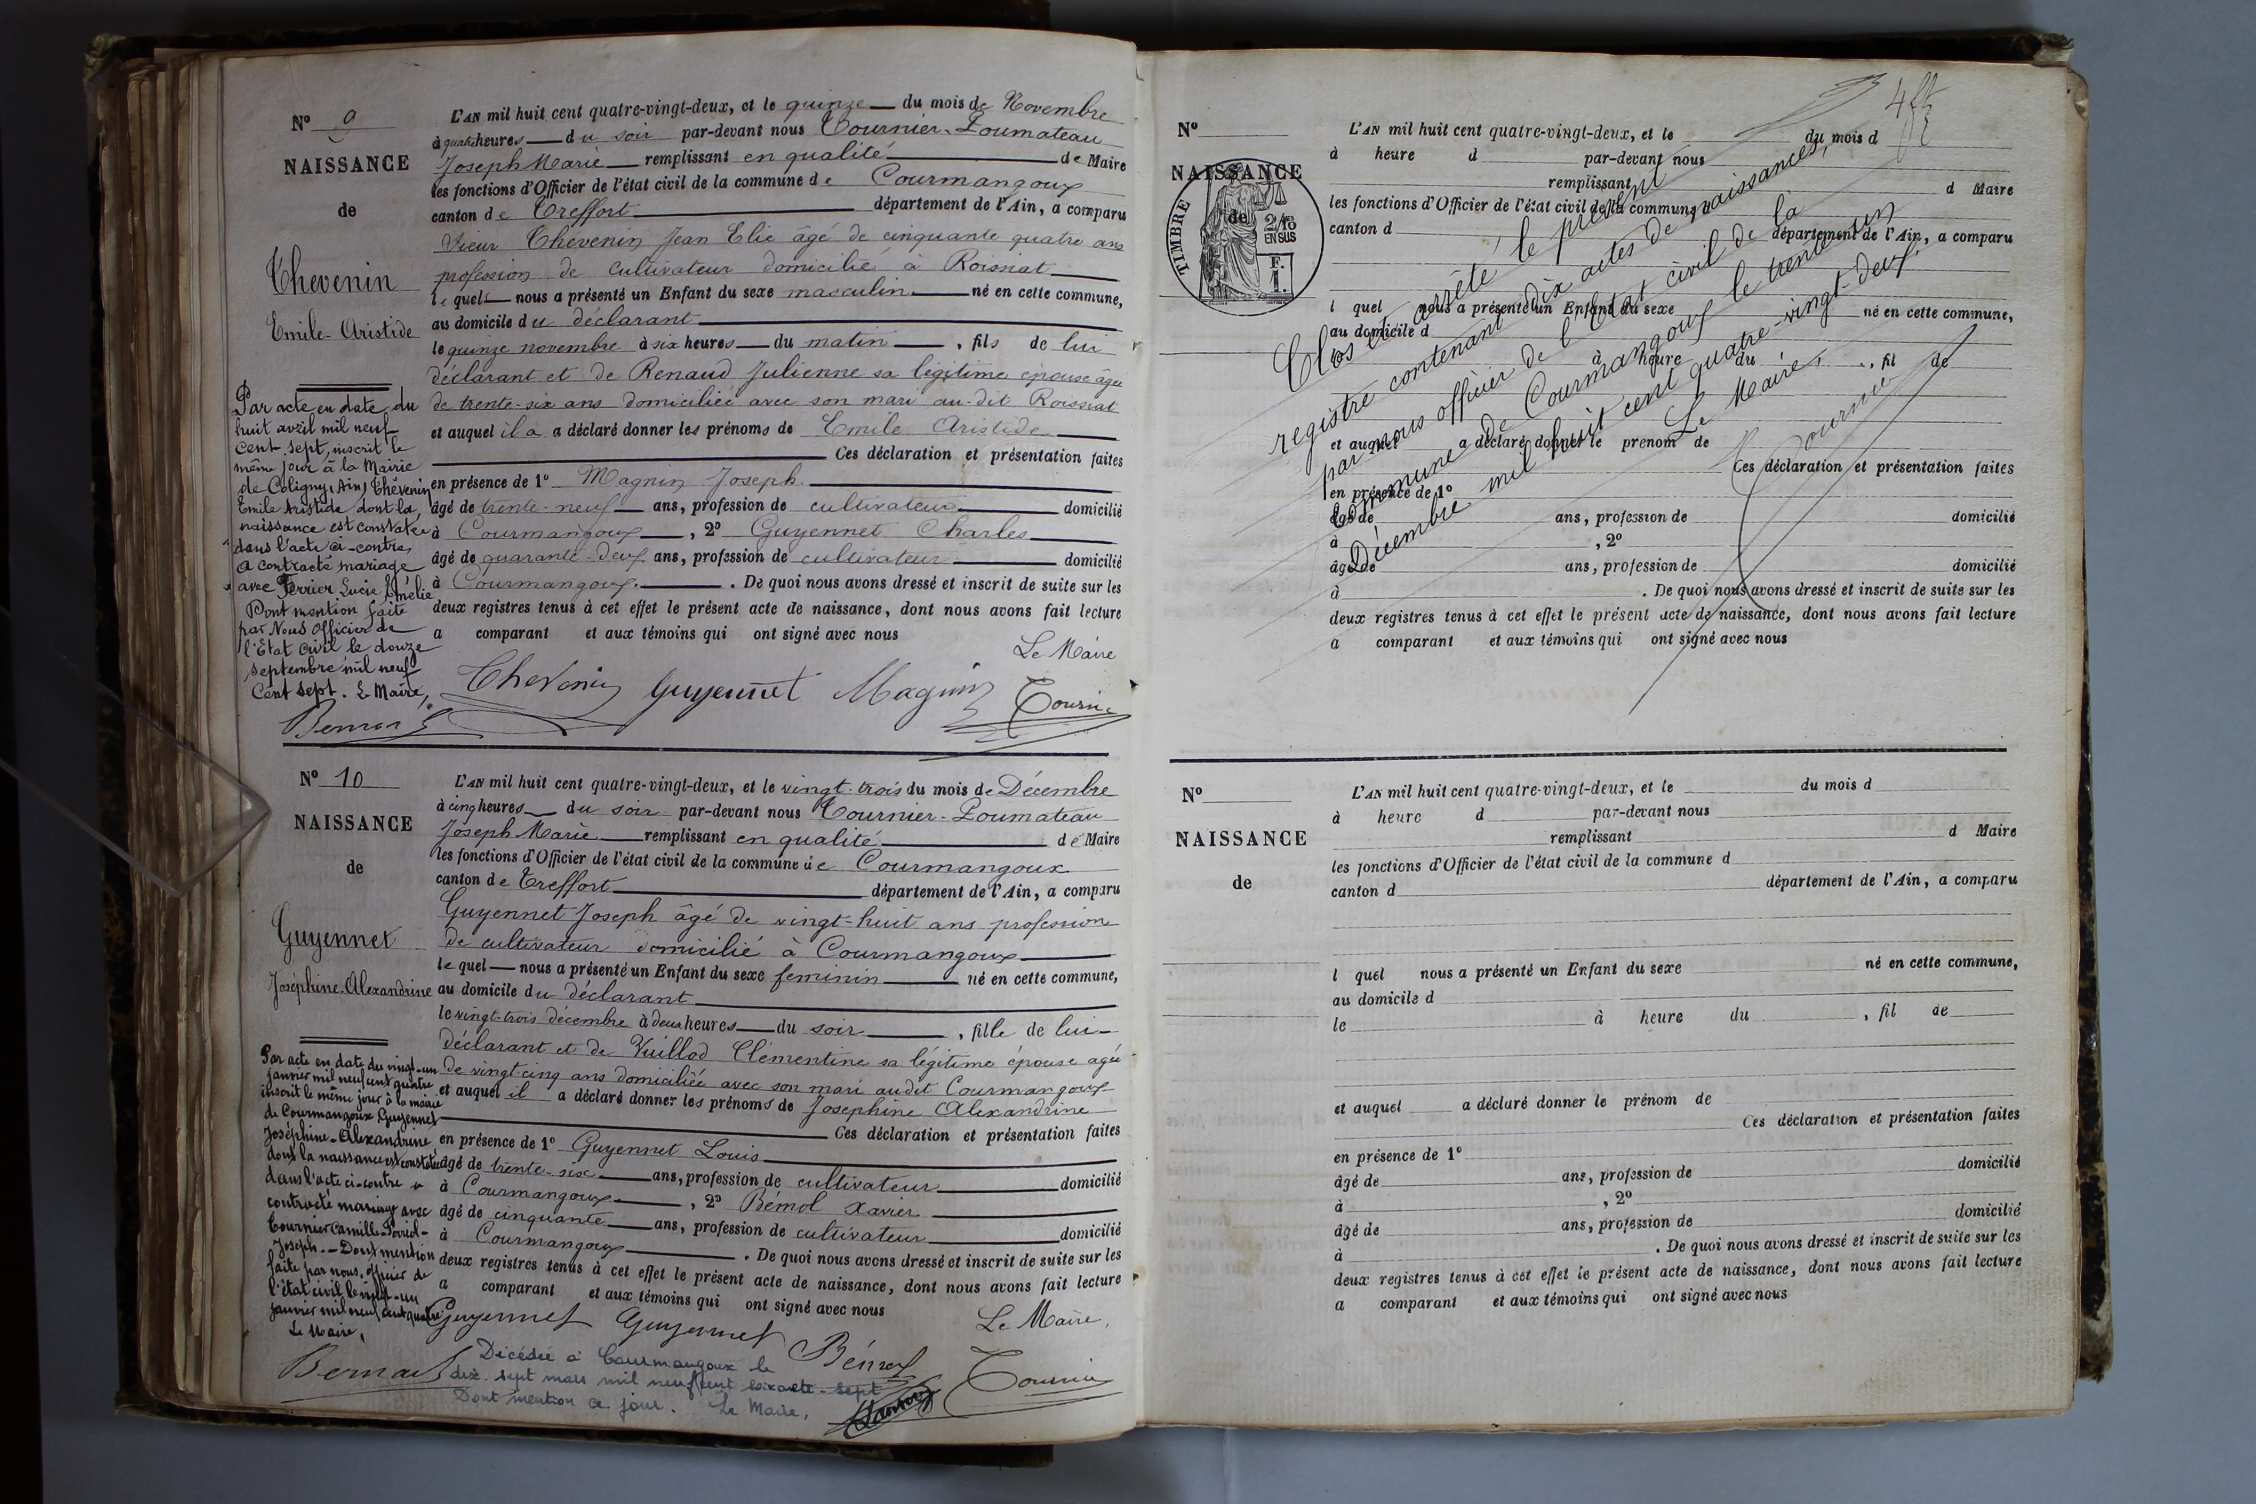 N° 9
NAISSANCE
de
Thevenin
Emile-Aristide
L'AN mil huit cent quatre-vingt-deux, et le quinze du mois de Novembre
à quatre heures du soir par-devant nous Tournier-Poumateau
Joseph Marie remplissant en qualité de Maire
les fonctions d'Officier de l'état civil de la commune de Courmangoux
canton de Treffort département de l'Ain, a comparu
Sieur Thévenin Jean Elie âgé de cinquante quatre ans
profession de cultivateur domicilié à Roissiat
lequel nous a présenté un Enfant du sexe masculin né en cette commune,
au domicile du déclarant
le quinze novembre à six heures du matin, fils de lui
déclarant et de Renaud Julienne sa légitime épouse âgée
de trente-six ans domiciliée avec son mari au-dit Roissiat
et auquel il a a déclaré donner les prénoms de Emile Aristide
Ces déclaration et présentation faites
en présence de 1° Magnin Joseph
âgé de trente-neuf ans, profession de cultivateur domicilié
à Courmangoux, 2° Guyennet Charles
âgé de quarante-deux ans, profession de cultivateur domicilié
à Courmangoux. De quoi nous avons dressé et inscrit de suite sur les
deux registres tenus à cet effet le présent acte de naissance, dont nous avons fait lecture
a comparant et aux témoins qui ont signé avec nous
Le Maire
Thevenin Guyennet Magnin Tournier
Par acte en date du
huit avril mil neuf
cent sept, inscrit le
même jour à la Mairie
de Coligny, Ain, Thévenin
Emile Aristide dont la
naissance est constatée
dans l'acte ci-contre,
a contracté mariage
avec Ferrier Lucie Amélie
Dont mention faite
par Nous Officier de
l'Etat civil le douze
septembre mil neuf
cent sept. Le Maire,
N° 10
NAISSANCE
de
Guyennet
Joséphine-Alexandrine
L'AN mil huit cent quatre-vingt-deux, et le vingt-trois du mois de Décembre
à cinq heures du soir par-devant nous Tournier-Poumateau
Joseph Marie remplissant en qualité de Maire
les fonctions d'Officier de l'état civil de la commune de Courmangoux
canton de Treffort département de l'Ain, a comparu
Guyennet Joseph âgé de vingt-huit ans profession
de cultivateur domicilié à Courmangoux
lequel nous a présenté un Enfant du sexe feminin né en cette commune,
au domicile du déclarant
le vingt-trois décembre à deux heures du soir, fille de lui
déclarant et de Vuillod Clémentine sa légitime épouse agée
de vingt-cinq ans domiciliée avec son mari audit Courmangoux
et auquel il a déclaré donner les prénoms de Josephine Alexandrine
Ces déclaration et présentation faites
en présence de 1° Guyennet Louis
âgé de trente-six ans, profession de cultivateur domicilié
à Courmangoux, 2° Bémol Xavier
âgé de cinquante ans, profession de cultivateur domicilié
à Courmangoux. De quoi nous avons dressé et inscrit de suite sur les
deux registres tenus à cet effet le présent acte de naissance, dont nous avons fait lecture
a comparant et aux témoins qui ont signé avec nous
Le Maire,
Guyennet Guyennet Bémol Tournier
Par acte en date du vingt-un
janvier mil neuf cent quatre
inscrit le même jour à la mairie
de Courmangoux Guyennet
Joséphine-Alexandrine
dont la naissance est constatée
dans l'acte ci-contre a
contracté mariage avec
Tournier Camille
Joseph.- Dont mention
faite par nous, officier de
l'état civil le vingt-un
janvier mil neuf cent quatre
Le Maire,
Décédée à Courmangoux le
dix-sept mars mil neuf cent soixante-sept
Dont mention ce jour. Le Maire,
N°
NAISSANCE
de
TIMBRE
2/10
EN SUS
F.
1.
L'AN mil huit cent quatre-vingt-deux, et le du mois d
à heure d par-devant nous
remplissant d Maire
les fonctions d'Officier de l'état civil de la commune d
canton d département de l'Ain, a comparu
l quel nous a présenté un Enfant du sexe né en cette commune,
au domicile d
le à heure du , fil de
et auquel a déclaré donner le prénom de
Ces déclaration et présentation faites
en présence de 1°
âgé de ans, profession de domicilié
à , 2°
âgé de ans, profession de domicilié
à . De quoi nous avons dressé et inscrit de suite sur les
deux registres tenus à cet effet le présent acte de naissance, dont nous avons fait lecture
a comparant et aux témoins qui ont signé avec nous
Clos et arrêté le présent
registre contenant dix actes de naissances,
par nous officier de l'Etat civil de la
Commune de Courmangoux le trente-un
Décembre mil huit cent quatre-vingt-deux.
Le Maire,
Tournier
N°
NAISSANCE
de
L'AN mil huit cent quatre-vingt-deux, et le du mois d
à heure d par-devant nous
remplissant d Maire
les fonctions d'Officier de l'état civil de la commune d
canton d département de l'Ain, a comparu
l quel nous a présenté un Enfant du sexe né en cette commune,
au domicile d
le à heure du , fil de
et auquel a déclaré donner le prénom de
Ces déclaration et présentation faites
en présence de 1°
âgé de ans, profession de domicilié
à , 2°
âgé de ans, profession de domicilié
à . De quoi nous avons dressé et inscrit de suite sur les
deux registres tenus à cet effet le présent acte de naissance, dont nous avons fait lecture
a comparant et aux témoins qui ont signé avec nous